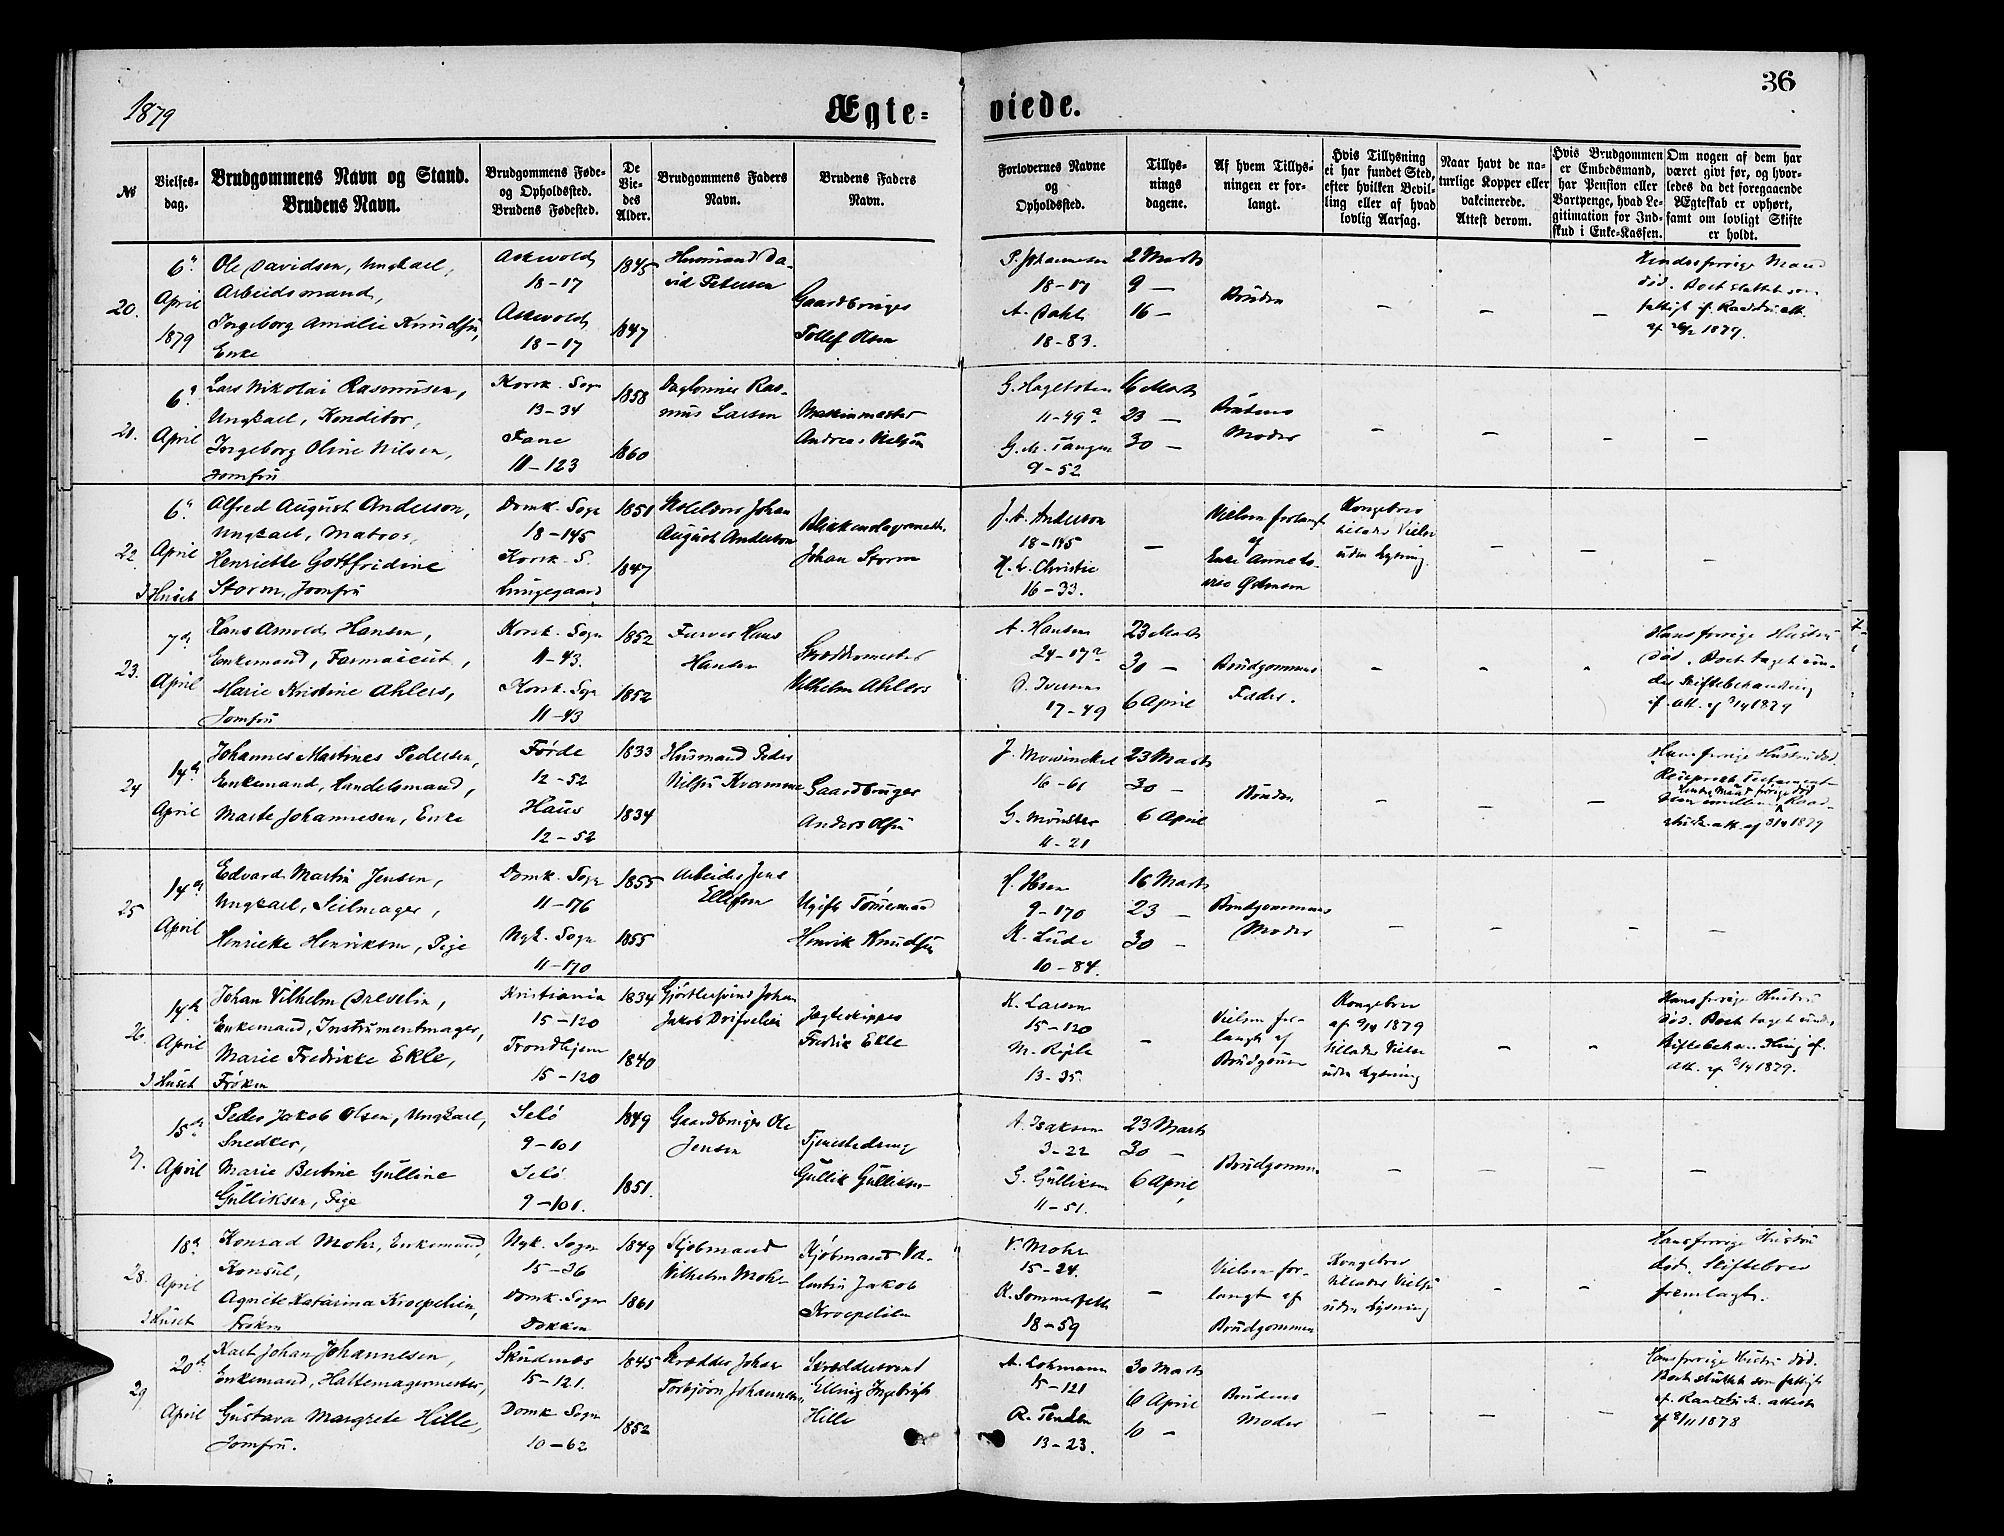 1879
Ægte=
viede.
36
№
Vielses-
dag.
Brudgommens Navn og Stand.
Brudens Navn.
Brudgommens Føde-
og Opholdssted.
Brudens Fødested.
De
Vie-
des
Alder.
Brudgommens Faders
Navn.
Brudens Faders
Navn.
Forlovernes Navne
og
Opholdssted.
Tillys-
nings
dagene.
Af hvem Tillys-
ningen er for-
langt.
Hvis Tillysning
ei har fundet Sted,
efter hvilken Bevil-
ling eller af hvad
lovlig Aarsag.
Naar havt de na-
turlige Kopper eller
vakcinerede.
Attest derom.
Hvis Brudgommen
er Embedsmand,
har Pension eller
Vartpenge, hvad Le-
gitimation for Ind-
skud i Enke-Kassen.
Om nogen af dem har
været givt før, og hvor-
ledes da det foregaaende
Ægteskab er ophørt,
samt om lovligt Skifte
er holdt.
20.
6te
April
1879
Ole Davidsen, Ungkarl,
Arbeidsmand,
Ingeborg Amalie Knudsen,
Enke
Askvold
18-17
Askvold
18-17
1845
1847
Husmand Da-
vid Petersen
Gaardbruger
Tollef Olsen
P. Johannesen
18-17
A. Dahl
18-83.
2 Marts
9 —
16 —
Bruden
—
—
—
Hendes forrige Mand
død. Boet sluttet som
fattigt
1879.
21.
6te
April
Lars Nikolai Rasmussen,
Ungkarl, Konditor,
Ingeborg Oline Nilsen,
Jomfru
Korsk. Sogn
13-34
Fane
11-123
1858
1860
Daglønner Ras-
mus Larsen
Maskinmester
Andreas Nielsen
G. Hagelsten
11-49a
G. M. Tangen
9-52
16 Marts
23 —
30 —
Brudens
Moder
—
—
—
—
22
6te
April
I Huset
Alfred August Anderson,
Ungkarl, Matros,
Henriette Gottfridine
Storm, Jomfru
Domk. Sogn
18-145
Korsk. S.
Lungegaard
1851
1847
Johan
August Anderson
Johan Storm
J. A. Anderson
18-145
Christie
16-33.
—
Vielsen forlangt
af
Enke
Kongebrev
tillader Vielse
uden Lysning.
—
—
—
23.
7de
April
Hans Arnold Hansen,
Enkemand, Farmaceut,
Marie Kristine Ahlers,
Jomfru
Korsk. Sogn
11-43.
Korsk. Sogn
11-43
1852
1852
Farver Hans
Hansen
Skræddermester
Vilhelm Ahlers
A. Hansen
24-17a
D. Iversen
17-49
23 Marts
30 —
6 April
Brudgommens
Fader.
—
—
—
Hans forrige Hustru
død. Boet taget un-
der Skiftebehandling
1879
24
14de
April
Johannes Martines Pedersen,
Enkemand, Handelsmand,
Marte Johannesen, Enke
Førde
12-52
Haus
12-52
1833
1834
Husmand Peder
Nilsen Kramme
Gaardbruger
Anders Olsen
J. Mowinckel
16-61
G. Mønster
11-21
23 Marts
30 —
6 April
Bruden
—
—
—
Hans forrige Hustru død.
Reciprokt Testament
1879
25
14de
April
Edvard Martin Jensen,
Ungkarl, Seilmager,
Henrikke Henriksen, Pige
Domk. Sogn
11-176
Nyk. Sogn
11-170
1855
1855
Arbeider Jens
Ellefsen
Ugift Tømmermand
Henrik Knudsen
9-170
K. Lude
10-84.
16 Marts
23 —
30 —
Brudgommens
Moder
—
—
—
—
26
14de
April
I Huset
Johan Vilhelm Drevelin,
Enkemand, Instrumentmager,
Marie Fredrikke Ekle,
Frøken
Kristiania
15-120
Trondhjem
15-120
1834
1840
Gjørtlersvend Johan
Jakob
Jægteskipper
Fredrik Ekle
K. Larsen
15-120
13-35.
—
Vielsen for-
langt af
Brudgommen
Kongebrev
af 9/4 1879
tillader Vielse
uden Lysning
—
—
Hans forrige Hustru
død. Boet taget under
Skiftebehandling
1879.
27.
15de
April
Peder Jakob Olsen, Ungkarl,
Snedker,
Marie Bertine Gulline
Gulliksen, Pige
Selø
9-101
Selø
9-101.
1849
1851.
Gaardbruger Ole
Jensen
Tjenestedreng
Gullik Gulliksen
A. Isaksen
3-22
G. Gulliksen
11-51.
23 Marts
30 —
6 April
Brudgommen
—
—
—
—
28.
18de
April
I Huset
Konrad Mohr, Enkemand,
Konsul,
Agnete Katarina Kroepelien,
Frøken
Nyk. Sogn
15-36
Domk. Sogn
Dokken
1849
1861
Kjøbmand
Vilhelm Mohr
Kjøbmand Va-
lentin Jakob
Kroepelien
V. Mohr
15-24.
R. Sommerfeldt
18-59
—
Vielsen for-
langt af
Brudgommen
Kongebrev
tillader Vielse
uden Lysning
—
—
Hans forrige Hustru
død. Skiftebrev
fremlagt.
29
20de
April
Karl Johan Johannesen,
Enkemand, Hattemagermester,
Gustava Margrete Hille,
Jomfru.
Skudenes
15-121.
Domk. Sogn
10-62
1845
1852
Skrædder Johan
Torbjørn Johannesen
Skræddersvend
Elling Ingebrigt
Hille
A. Lohmann
15-121
R. Tenden
13-23.
30 Marts
6 April
10 —
Brudens
Moder
—
—
—
Hans forrige Hustru død.
Boet sluttet som fattigt
1878